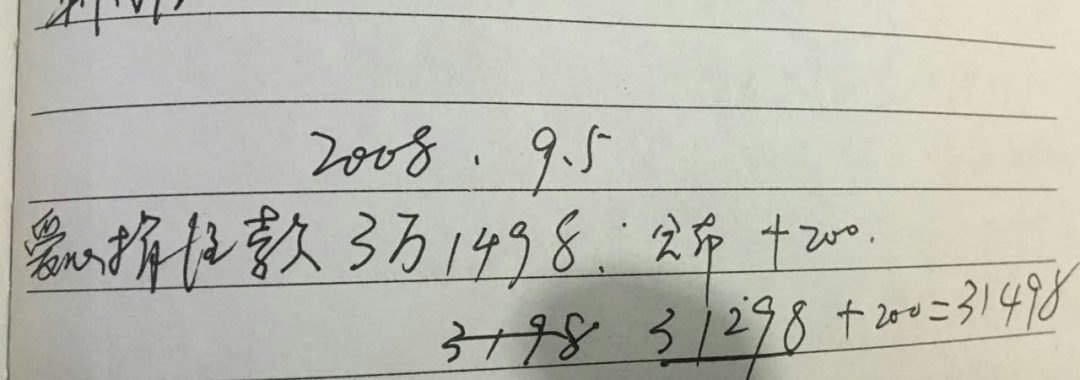 2008. 9.5
爱心捐款 3万1498. 公布 +200.
3198 31298 + 200 = 31498